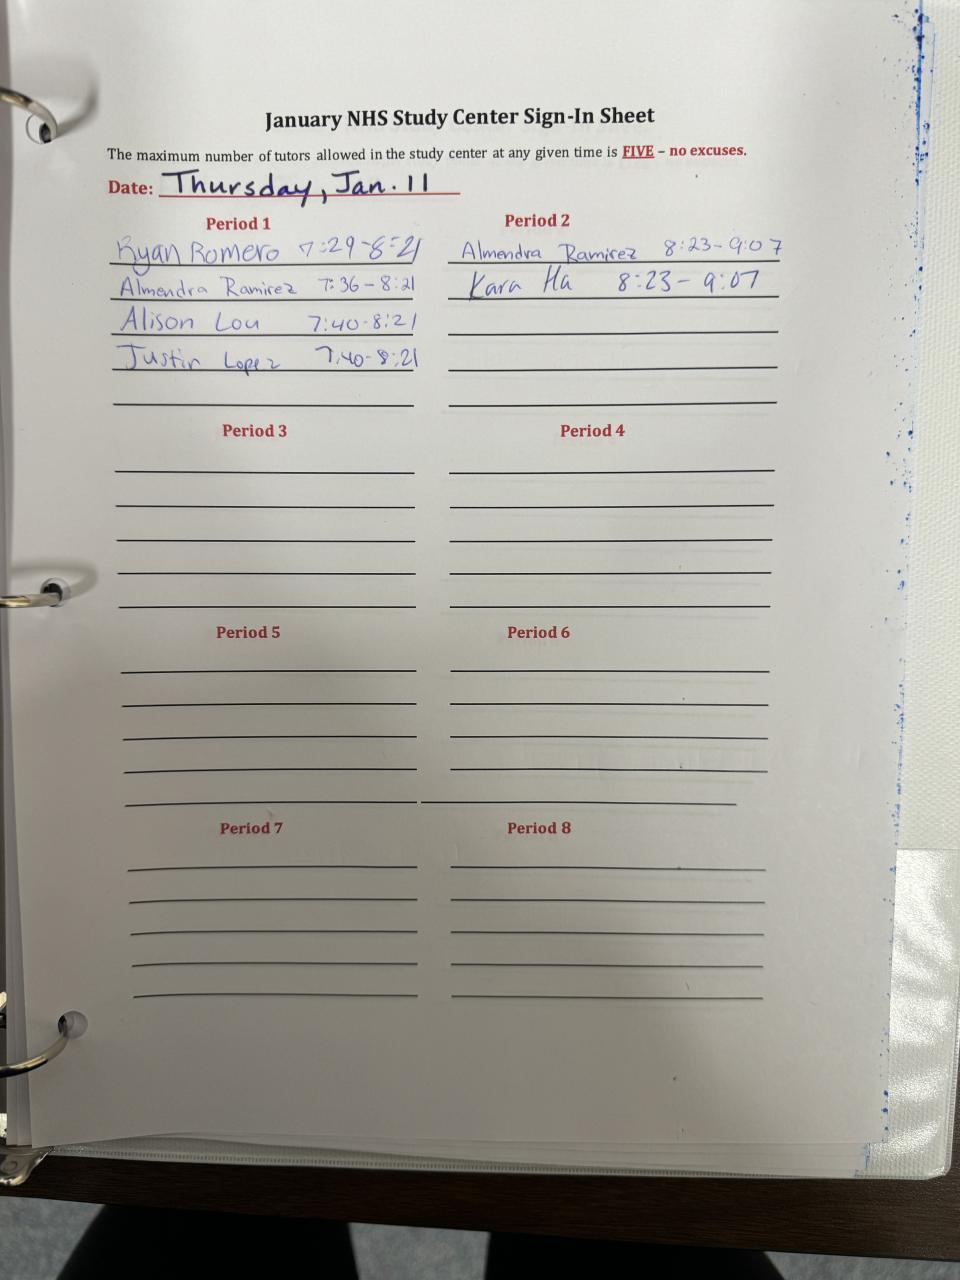 January NHS Study Center Sign-In Sheet
The maximum number of tutors allowed in the study center at any given time is FIVE – no excuses.
Date: Thursday, Jan. 11
Period 1
Ryan Romero 7:29-8:21
Almendra Ramirez 7:36-8:21
Alison Lou 7:40-8:21
Justin Lopez 7:40-8:21
Period 2
Almendra Ramirez 8:23-9:07
Kara Ha 8:23-9:07
Period 3
Period 4
Period 5
Period 6
Period 7
Period 8